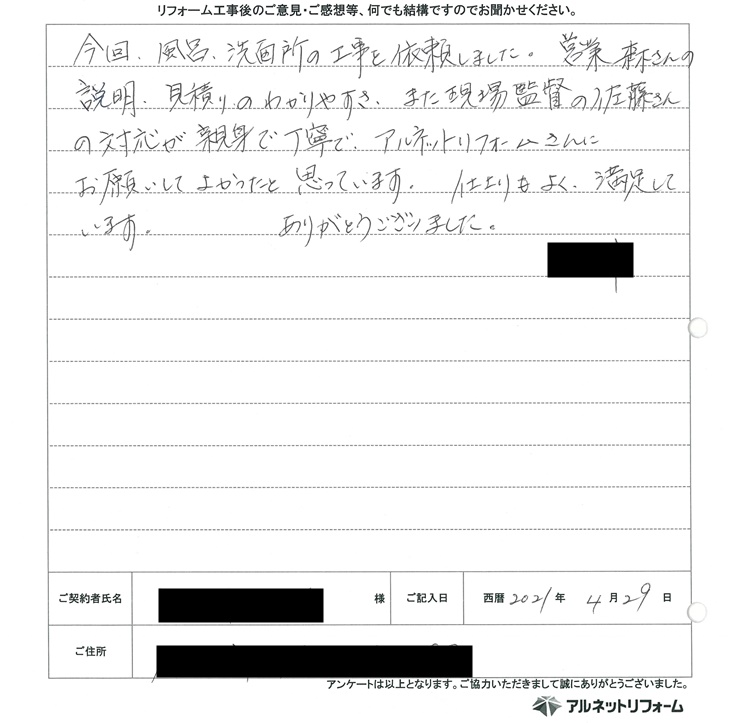 リフォーム工事後のご意見・ご感想等、何でも結構ですのでお聞かせください。
今回、風呂、洗面所の工事を依頼しました。営業 森さんの
説明、見積りのわかりやすさ、また現場監督の佐藤さん
の対応が親身で丁寧で、アルネットリフォームさんに
お願いしてよかったと思っています。仕上りもよく、満足して
います。 ありがとうございました。
ご契約者氏名 様 ご記入日 西暦 2021 年 4 月 29 日
ご住所
アンケートは以上となります。ご協力いただきまして誠にありがとうございました。
アルネットリフォーム